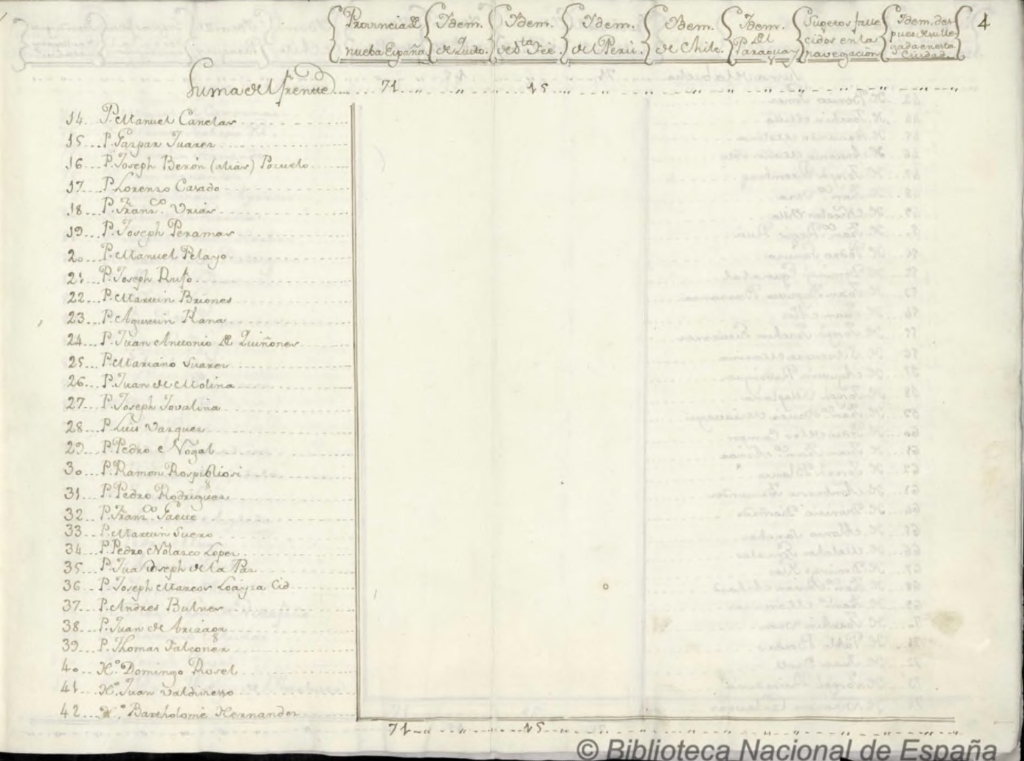 Provincia de nueba España
Idem. de Quito.
Idem. de Sta. Fee.
Idem. del Perú.
Idem. de Chile.
Idem. del Paraguay
Sugetos falle cidos en las navegacion.
Idem. des pues llegada a esta Ciudad.
4
Suma del frente 71 15
14 P. Manuel Canelas
15 P. Gaspar Juarez
16 P. Joseph Berón (alias) Pozuelo
17 P. Lorenzo Casado
18 P. Franco. Urias
19 P. Joseph Peramas
20 P. Manuel Pelayo
21 P. Joseph Rufo
22 P. Martin Briones
23 P. Agustin Rana
24 P. Juan Antonio de Quiñones
25 P. Mariano Suarez
26 P. Juan de Molina
27 P. Joseph Jovaliña
28 P. Luis Vazquez
29 P. Pedro Nogal
30 P. Ramon Rospigliosi
31 P. Pedro Rodriguez
32 P. Franco. Gaete
33 P. Martin Suero
34 P. Pedro Nolasco Lopez
35 P. Juan Joseph de la Paz
36 P. Joseph Marcos Loayza Cid
37 P. Andres Bulner
38 P. Juan de Arizaga
39 P. Thomas Falconer
40 Ho. Domingo Rosel
41 Ho. Juan Valdivieso
42 Ho. Bartholomé Hernandez
71 15
© Biblioteca Nacional de España